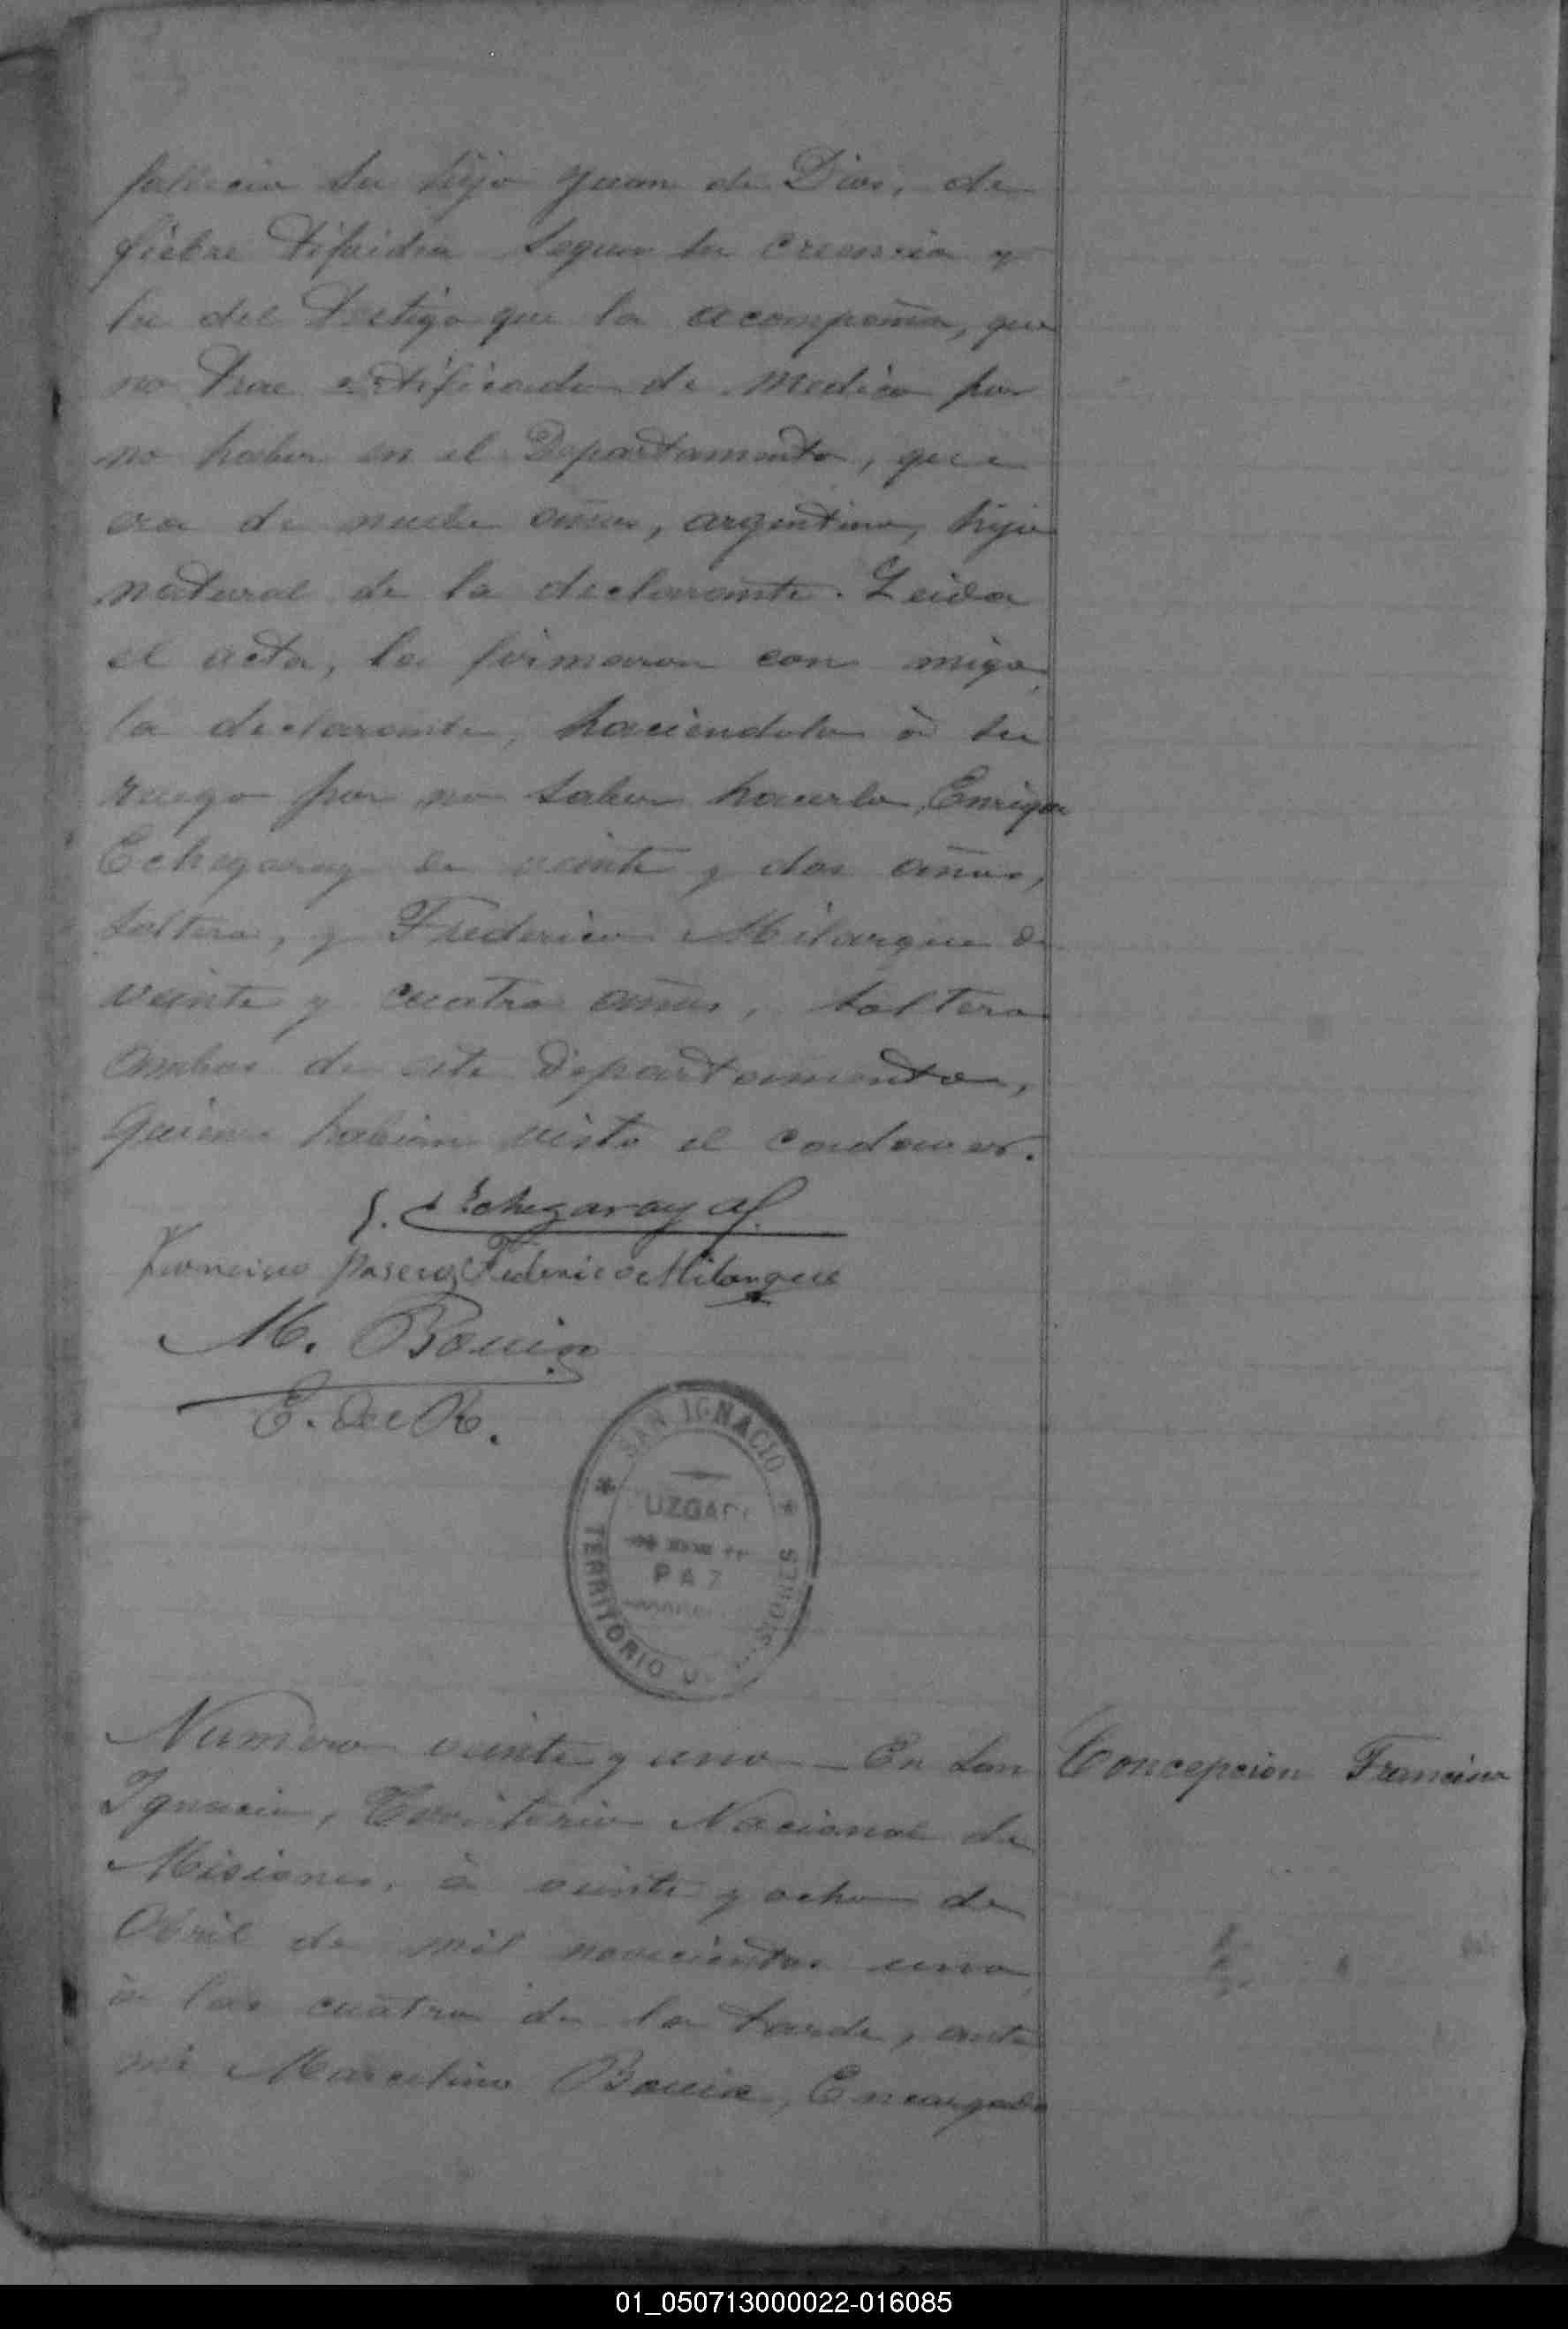 fallecia su hijo Juan de Dios, de
fiebre tifoidea segun su creencia y
la del testigo que la acompaña, que
no trae certificado de medico por
no haber en el Departamento, que
era de nueve años, argentino, hijo
natural de la declarante. Leida
el acta, la firmaron con migo
la declarante, haciendolo à su
ruego por no saber hacerlo, Enrique
Echegaray de veinte y dos años,
soltero, y Frederico Milarque de
veinte y cuatro años, soltero
ambos de este Departamento,
quienes habian visto el cadaver.
Echegaray
Francisco Federico Milanque
M. Bouix
E. del R.
SAN IGNACIO
UZGAD
PAZ
TERRITORIO
SIONES
Numero veinte y uno — En San
Concepcion Francisca
Ignacio, Territorio Nacional de
Misiones, à veinte y ocho de
Abril de mil novecientos uno
à las cuatro de la tarde, ante
mi Marcelino Bouix, Encargado
01_050713000022-016085